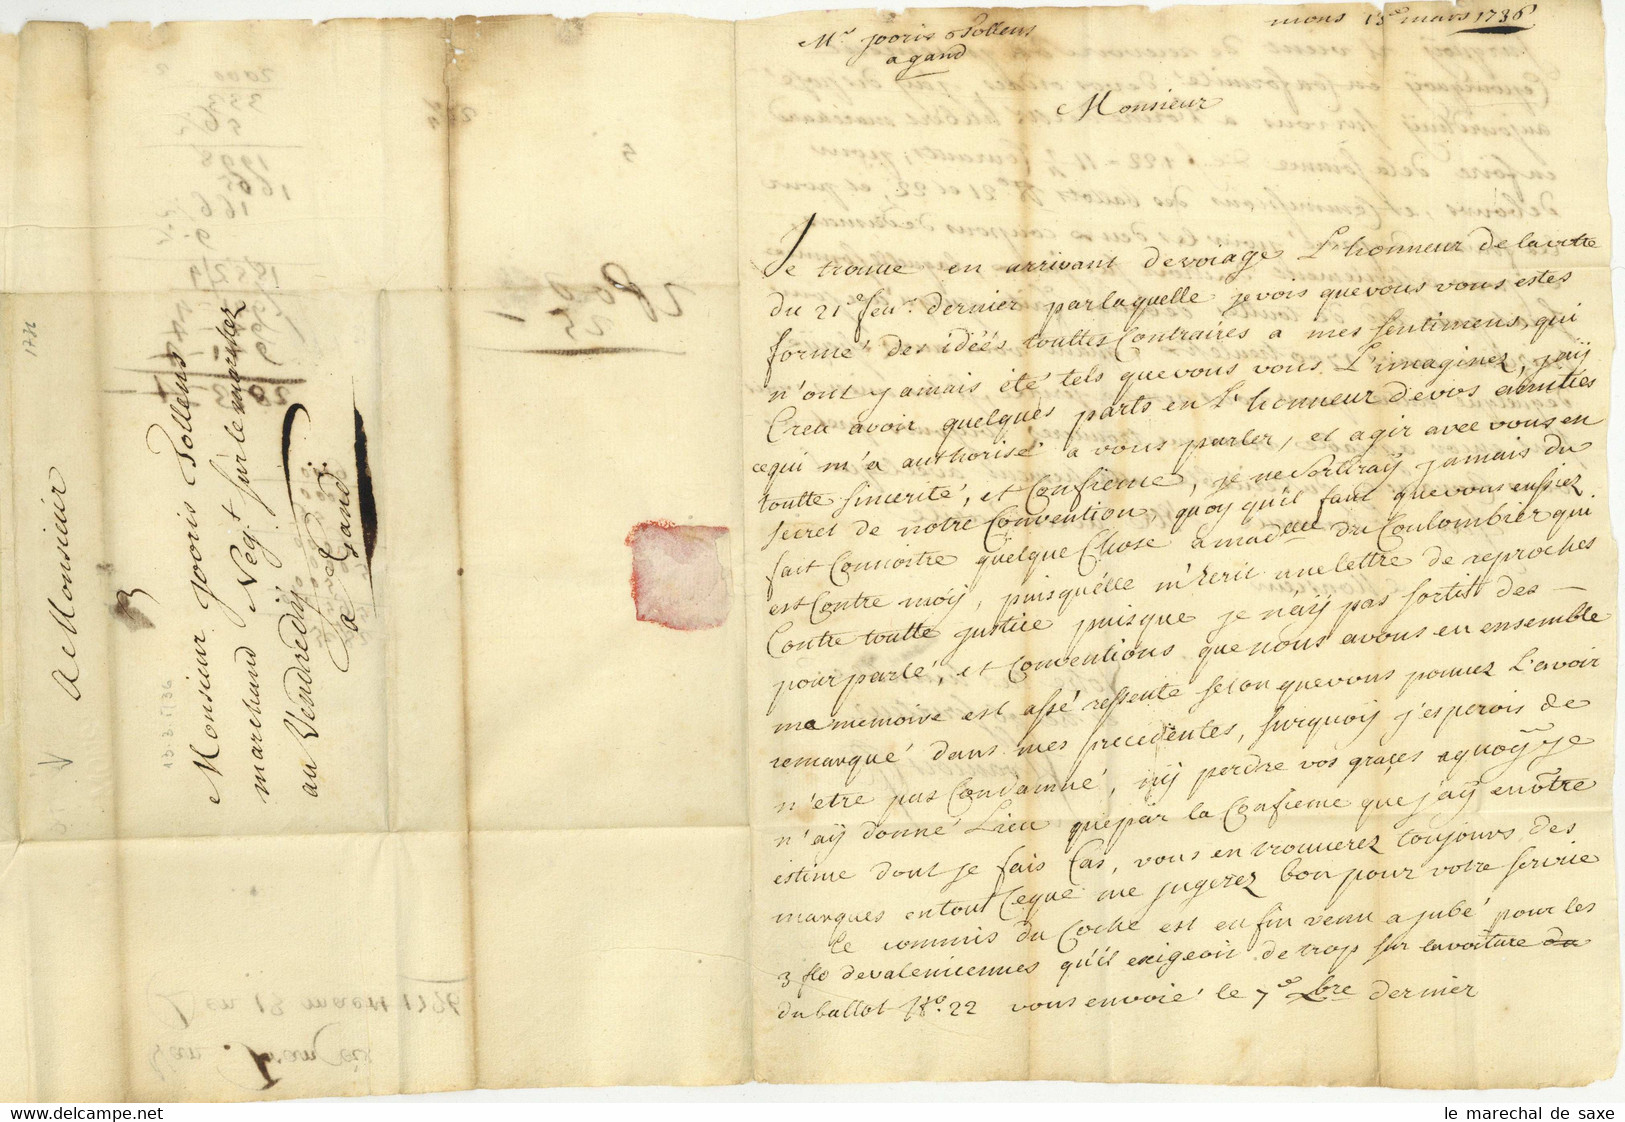 mons 13e mars 1736
Mr. jooris Pollens
a gand
Monsieur
Je trouve en arrivant de voiage L'honneur de la votre
du 21e feu.r dernier par laquelle je vois que vous vous estes
formé des idées touttes Contraires a mes sentimens, qui
n'ont jamais été tels que vous vous L'imaginez, j'aÿ
Creu avoir quelques parts en L'honneur de vos amities
ce qui m'a authorisé a vous parler, et agir avec vous en
toutte sincerité, et Confience, je ne sortiraÿ jamais du
secret de notre Convention, quoy qu'il faut que vous eussiez
fait Connoitre quelque Chose a mad.elle Du Coulombier qui
est Contre moÿ, puisqu'elle m'Ecrit une lettre de reproches
Contre toutte justice puisque je n'aÿ pas sortit des
pourparlé, et Conventions que nous avons eu ensemble
ma memoire est assé ressente selon que vous pouvez L'avoir
remarqué dans mes precedentes, surquoÿ j'esperois de
n'etre pas Condamné, nÿ perdre vos graces a quoÿ je
n'aÿ donné Lieu que par la Confience que j'aÿ en vôtre
estime dont je fais Cas, vous en trouverez toujours des
marques en tout Ceque me jugerez bon pour votre service
Le commis du Coche est enfin venu a jubé pour les
3 flo de valenciennes qu'il exigeoit de trop sur la voiture du
du ballot No. 22 vous envoié le 7e 9bre dernier
A Monsieur
Monsieur jooris Pollens
marchand Neg.t sur le marchez
au Vendredÿ
a Gand.
3
13.3.1736
le marechal de saxe